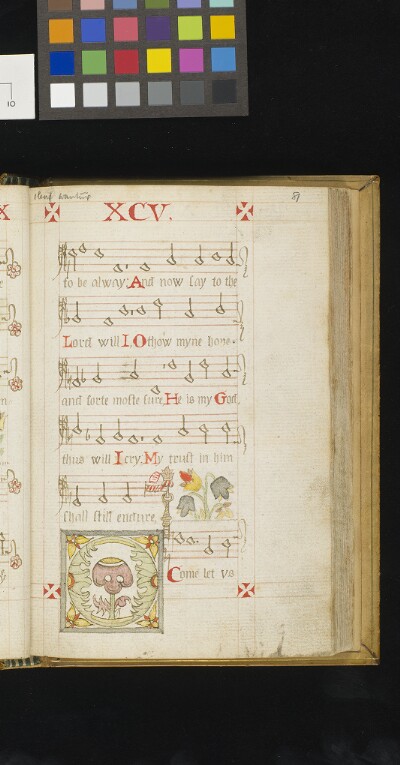 10
X
87
XCV.
to be alway: And now say to the
Lord will I, O thow myne hope.
and forte moste sure, He is my God,
thus will I cry, My trust in him
shall still endure,
Come let vs